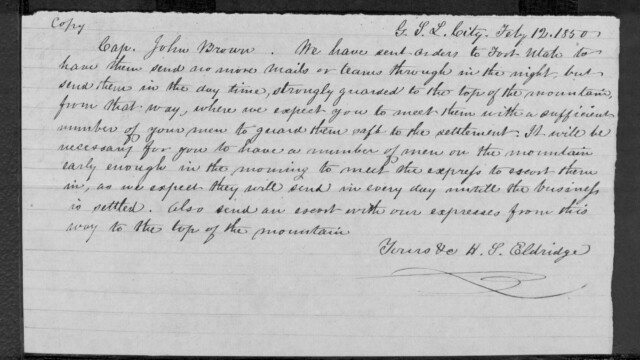 Copy
G. S. L. City. Feby 12. 1850
Cap. John Brown. We have sent orders to Fort Utah to
have them send no more mails or teams through in the night, but
send them in the day time, strongly guarded to the top of the mountain,
from that way, where we expect you to meet them with a sufficient
number of your men to guard them safe to the settlement. It will be
necessary for you to have a number of men on the mountain
early enough in the morning to meet the express to escort them
in, as we expect they will send in every day untill the business
is settled. Also send an escort with our expresses from this
way to the top of the mountain
Yours &c H. S. Eldridge